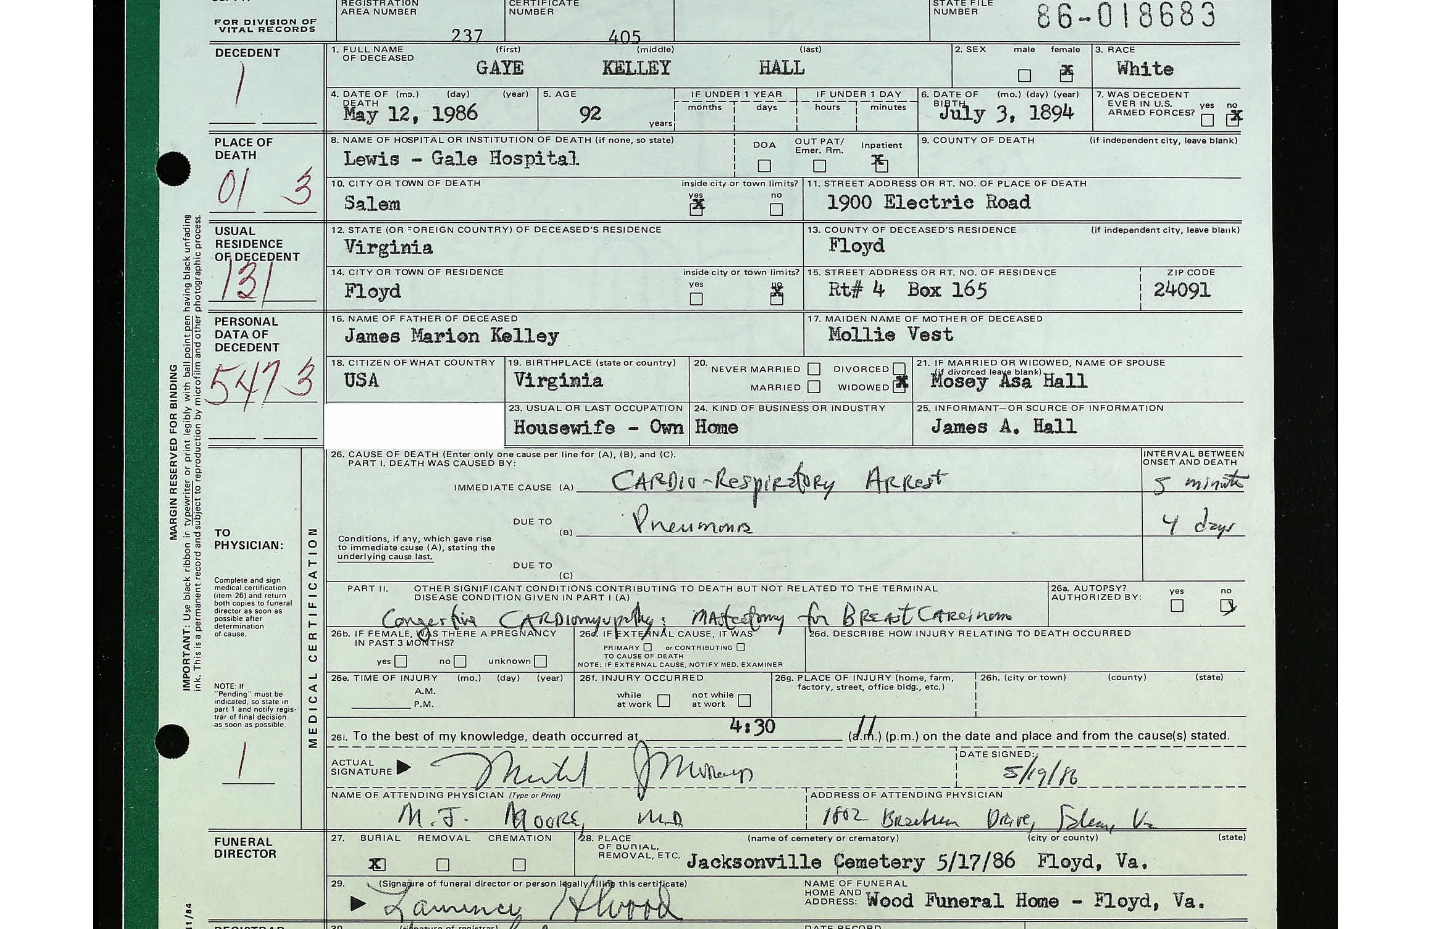 REGISTRATION AREA NUMBER 237 CERTIFICATE NUMBER 405 STATE FILE NUMBER 86-018683
FOR DIVISION OF VITAL RECORDS
DECEDENT
1
1. FULL NAME OF DECEASED (first) (middle) (last) 2. SEX male female 3. RACE
GAYE KELLEY HALL X White
4. DATE OF DEATH (mo.) (day) (year) 5. AGE IF UNDER 1 YEAR IF UNDER 1 DAY 6. DATE OF BIRTH (mo.) (day) (year) 7. WAS DECEDENT EVER IN U.S. ARMED FORCES? yes no
May 12, 1986 92 years months days hours minutes July 3, 1894 X
PLACE OF DEATH
01 3
8. NAME OF HOSPITAL OR INSTITUTION OF DEATH (if none, so state) DOA OUT PAT/ Emer. Rm. Inpatient 9. COUNTY OF DEATH (if independent city, leave blank)
Lewis - Gale Hospital X
10. CITY OR TOWN OF DEATH inside city or town limits? yes no 11. STREET ADDRESS OR RT. NO. OF PLACE OF DEATH
Salem X 1900 Electric Road
USUAL RESIDENCE OF DECEDENT
131
12. STATE (OR FOREIGN COUNTRY) OF DECEASED'S RESIDENCE 13. COUNTY OF DECEASED'S RESIDENCE (if independent city, leave blank)
Virginia Floyd
14. CITY OR TOWN OF RESIDENCE inside city or town limits? yes no 15. STREET ADDRESS OR RT. NO. OF RESIDENCE ZIP CODE
Floyd X Rt# 4 Box 165 24091
PERSONAL DATA OF DECEDENT
5473
16. NAME OF FATHER OF DECEASED 17. MAIDEN NAME OF MOTHER OF DECEASED
James Marion Kelley Mollie Vest
18. CITIZEN OF WHAT COUNTRY 19. BIRTHPLACE (state or country) 20. NEVER MARRIED DIVORCED MARRIED WIDOWED 21. IF MARRIED OR WIDOWED, NAME OF SPOUSE (if divorced leave blank)
USA Virginia X Mosey Asa Hall
23. USUAL OR LAST OCCUPATION 24. KIND OF BUSINESS OR INDUSTRY 25. INFORMANT—OR SOURCE OF INFORMATION
Housewife - Own Home James A. Hall
MARGIN RESERVED FOR BINDING
IMPORTANT: Use black ribbon in typewriter or print legibly with ball point pen having black unfading
ink. This is a permanent record and subject to reproduction by microfilm and other photographic process.
MEDICAL CERTIFICATION
26. CAUSE OF DEATH (Enter only one cause per line for (A), (B), and (C). INTERVAL BETWEEN ONSET AND DEATH
PART I. DEATH WAS CAUSED BY:
IMMEDIATE CAUSE (A) CARDIO-Respiratory ARRest 5 minute
DUE TO (B) Pneumonia 4 days
Conditions, if any, which gave rise to immediate cause (A), stating the underlying cause last.
DUE TO (C)
TO PHYSICIAN:
Complete and sign medical certification (item 26) and return both copies to funeral director as soon as possible after determination of cause.
PART II. OTHER SIGNIFICANT CONDITIONS CONTRIBUTING TO DEATH BUT NOT RELATED TO THE TERMINAL DISEASE CONDITION GIVEN IN PART I (A) 26a. AUTOPSY? AUTHORIZED BY: yes no
Congestive CARDiomyopathy; MAstectomy for BReast CARcinoma
26b. IF FEMALE, WAS THERE A PREGNANCY IN PAST 3 MONTHS? yes no unknown
26c. IF EXTERNAL CAUSE, IT WAS PRIMARY or CONTRIBUTING TO CAUSE OF DEATH
NOTE: IF EXTERNAL CAUSE, NOTIFY MED. EXAMINER
26d. DESCRIBE HOW INJURY RELATING TO DEATH OCCURRED
NOTE: If "Pending" must be indicated, so state in part 1 and notify registrar of final decision as soon as possible.
1
26e. TIME OF INJURY (mo.) (day) (year) A.M. P.M. 26f. INJURY OCCURRED while at work not while at work 26g. PLACE OF INJURY (home, farm, factory, street, office bldg., etc.) 26h. (city or town) (county) (state)
26i. To the best of my knowledge, death occurred at 4:30 (a.m.) (p.m.) on the date and place and from the cause(s) stated.
ACTUAL SIGNATURE DATE SIGNED: 5/19/86
NAME OF ATTENDING PHYSICIAN (Type or Print) ADDRESS OF ATTENDING PHYSICIAN
M. J. MOORE, M.D. 1802 Drive, Salem, Va
FUNERAL DIRECTOR
27. BURIAL REMOVAL CREMATION 28. PLACE OF BURIAL, REMOVAL, ETC. (name of cemetery or crematory) (city or county) (state)
X Jacksonville Cemetery 5/17/86 Floyd, Va.
29. (Signature of funeral director or person legally filing this certificate) NAME OF FUNERAL HOME AND ADDRESS:
Wood Funeral Home - Floyd, Va.
11/84
REGISTRAR
30. (signature of registrar) DATE RECORD